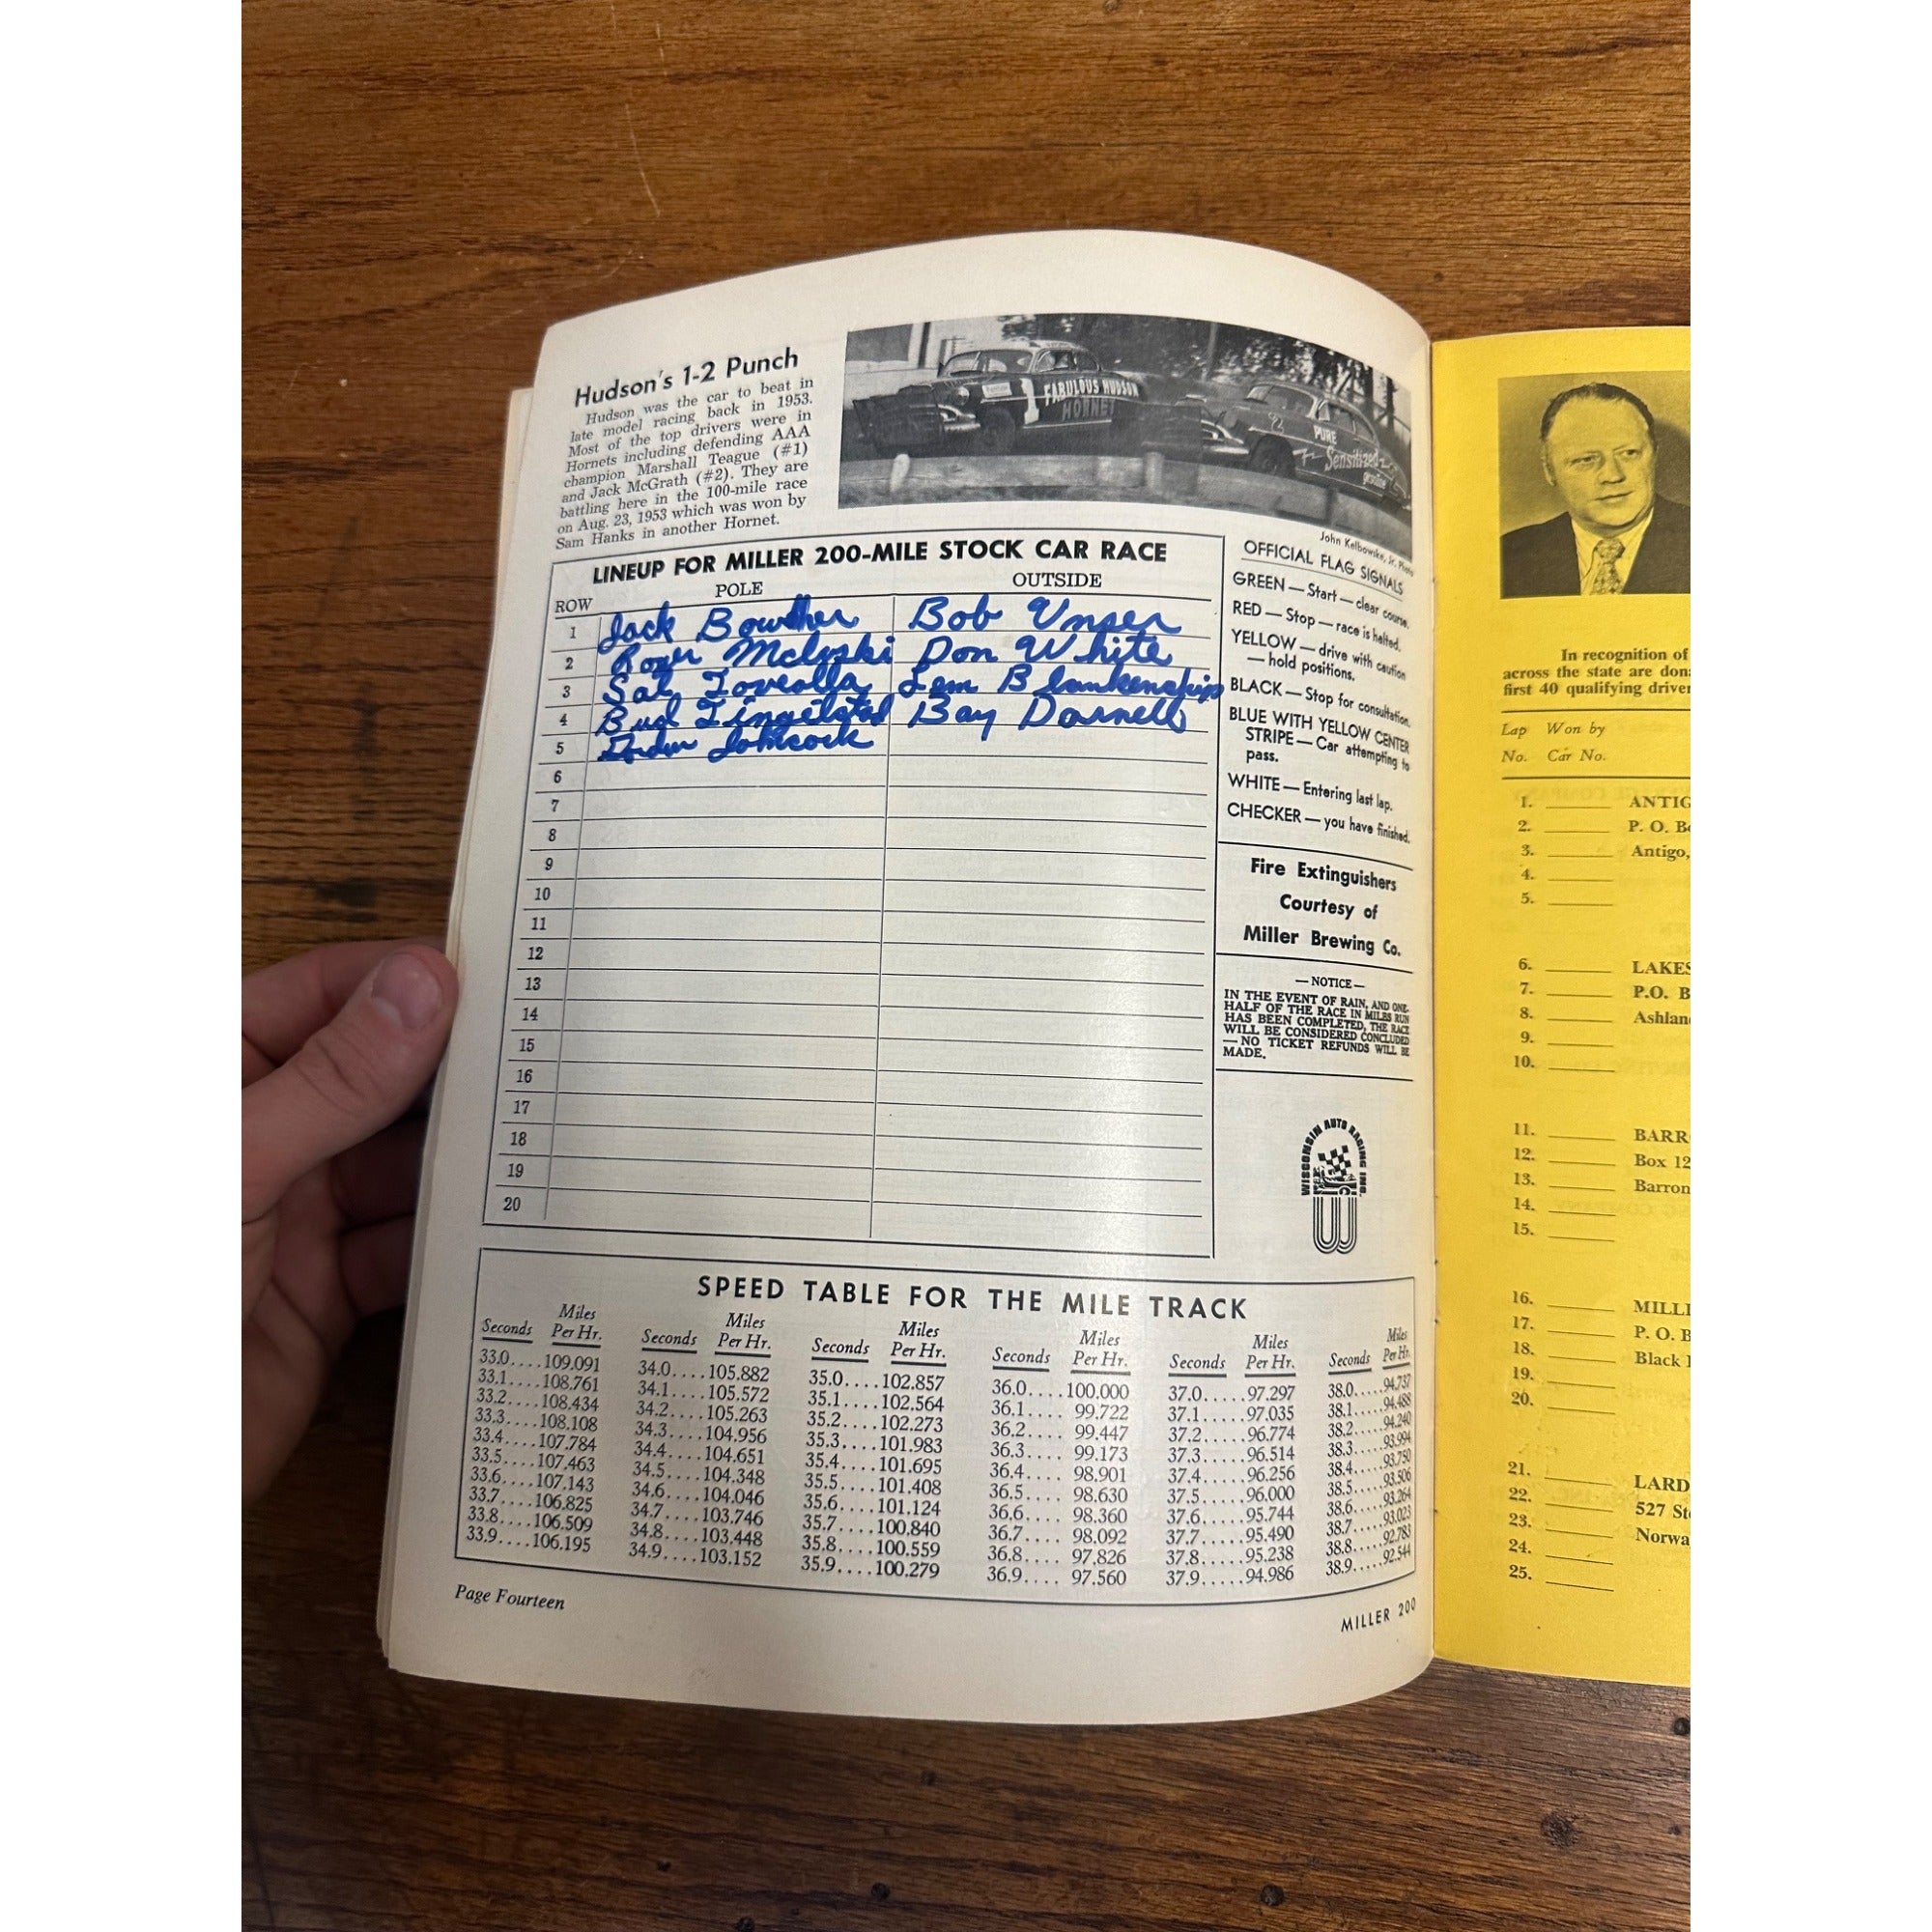 Hudson's 1-2 Punch
Hudson was the car to beat in
late model racing back in 1953.
Most of the top drivers were in
Hornets including defending AAA
champion Marshall Teague (#1)
and Jack McGrath (#2). They are
battling here in the 100-mile race
on Aug. 23, 1953 which was won by
Sam Hanks in another Hornet.
1 FABULOUS HUDSON
HORNET
2 PURE
Sensitized
gasoline
John Kelbowske, Jr. Photo
LINEUP FOR MILLER 200-MILE STOCK CAR RACE
ROW POLE OUTSIDE
1 Jack Bowsher Bob Unser
2 Roger McCluski Don White
3 Sal Tovealla Lem Blankenship
4 Bud Tingelstad Bay Darnell
5 Johncock
6
7
8
9
10
11
12
13
14
15
16
17
18
19
20
OFFICIAL FLAG SIGNALS
GREEN — Start — clear course.
RED — Stop — race is halted.
YELLOW — drive with caution
— hold positions.
BLACK — Stop for consultation.
BLUE WITH YELLOW CENTER
STRIPE — Car attempting to
pass.
WHITE — Entering last lap.
CHECKER — you have finished.
Fire Extinguishers
Courtesy of
Miller Brewing Co.
— NOTICE —
IN THE EVENT OF RAIN, AND ONE-
HALF OF THE RACE IN MILES RUN
HAS BEEN COMPLETED, THE RACE
WILL BE CONSIDERED CONCLUDED
— NO TICKET REFUNDS WILL BE
MADE.
WISCONSIN AUTO RACING INC.
SPEED TABLE FOR THE MILE TRACK
Seconds Miles Per Hr. Seconds Miles Per Hr. Seconds Miles Per Hr. Seconds Miles Per Hr. Seconds Miles Per Hr. Seconds Miles Per Hr.
33.0....109.091 34.0....105.882 35.0....102.857 36.0....100.000 37.0.....97.297 38.0.....94.737
33.1....108.761 34.1....105.572 35.1....102.564 36.1.... 99.722 37.1.....97.035 38.1.....94.488
33.2....108.434 34.2....105.263 35.2....102.273 36.2.... 99.447 37.2.....96.774 38.2.....94.240
33.3....108.108 34.3....104.956 35.3....101.983 36.3.... 99.173 37.3.....96.514 38.3.....93.994
33.4....107.784 34.4....104.651 35.4....101.695 36.4.... 98.901 37.4.....96.256 38.4.....93.750
33.5....107.463 34.5....104.348 35.5....101.408 36.5.... 98.630 37.5.....96.000 38.5.....93.506
33.6....107.143 34.6....104.046 35.6....101.124 36.6.... 98.360 37.6.....95.744 38.6.....93.264
33.7....106.825 34.7....103.746 35.7....100.840 36.7.... 98.092 37.7.....95.490 38.7.....93.023
33.8....106.509 34.8....103.448 35.8....100.559 36.8.... 97.826 37.8.....95.238 38.8.....92.783
33.9....106.195 34.9....103.152 35.9....100.279 36.9.... 97.560 37.9.....94.986 38.9.....92.544
Page Fourteen
MILLER 200
In recognition of
across the state are don
first 40 qualifying driver
Lap Won by
No. Car No.
1. ANTIG
2. P. O. B
3. Antigo,
4.
5.
6. LAKES
7. P.O. B
8. Ashlan
9.
10.
11. BARR
12. Box 12
13. Barron
14.
15.
16. MILLI
17. P. O. B
18. Black
19.
20.
21. LARD
22. 527 St
23. Norwa
24.
25.